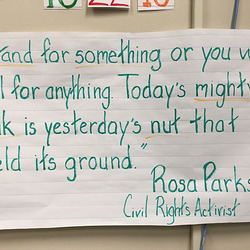 10 22 16
and for something or you w
l for anything. Today's mighty
ak is yesterday's nut that
eld its ground."
Rosa Parks
Civil Rights Activist